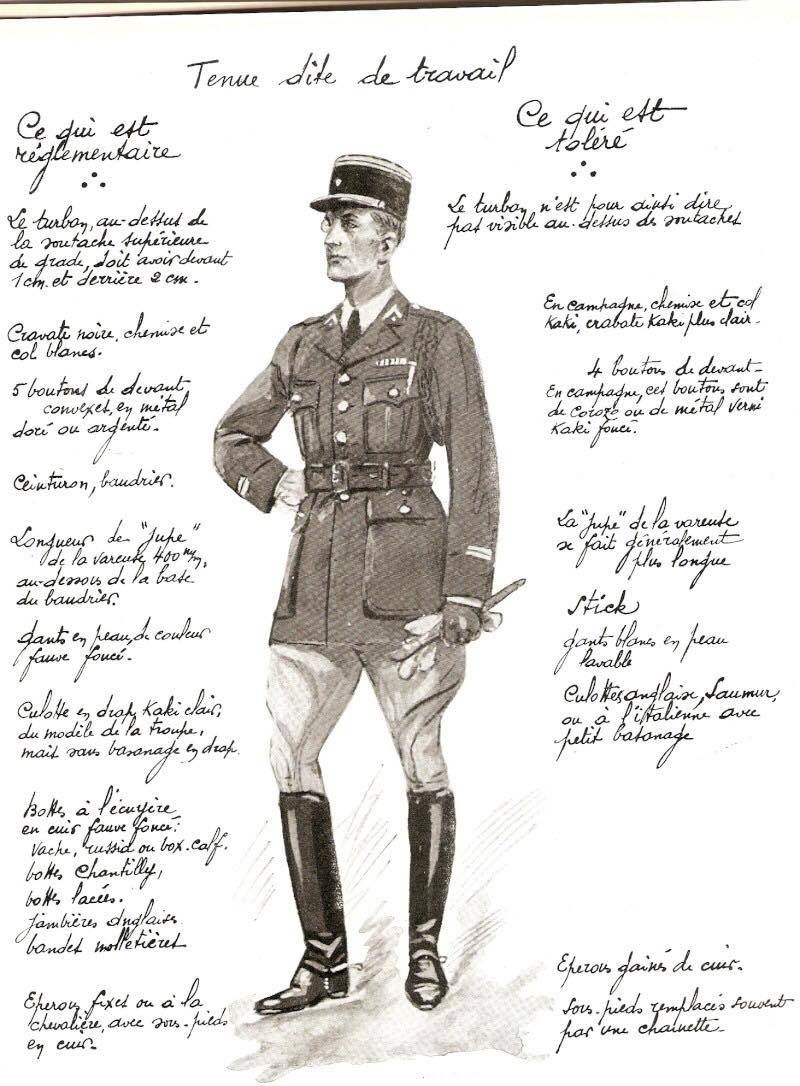 Tenue dite de travail
Ce qui est
réglementaire
Le turban, au-dessus de
la soutache supérieure
de grade, doit avoir devant
1 cm. et derrière 2 cm.
Cravate noire, chemise et
col blancs.
5 boutons de devant
convexes, en métal
doré ou argenté.
Ceinturon, baudrier.
Longueur de "jupe"
de la vareuse, 400 m/m,
au-dessous de la base
du baudrier.
gants en peau, de couleur
fauve foncé.
Culotte en drap Kaki clair,
du modèle de la troupe,
mais sans basanage en drap.
Bottes à l'écuyère
en cuir fauve foncé:
vache, russid ou box-calf.
bottes Chantilly,
bottes lacées.
jambières anglaises
bandes molletières
Eperons fixes ou à la
chevalière, avec sous-pieds
en cuir.
Ce qui est
toléré
Le turban n'est pour ainsi dire
pas visible au-dessus des soutaches
En campagne, chemise et col
Kaki, cravate Kaki plus clair.
4 boutons de devant
En campagne, ces boutons sont
de corozo ou de métal verni
Kaki foncé.
La "jupe" de la vareuse
se fait généralement
plus longue
Stick
gants blancs en peau
lavable
Culottes anglaise, Saumur,
ou à l'italienne avec
petit basanage
Eperons gainés de cuir.
Sous-pieds remplacés souvent
par une chainette.